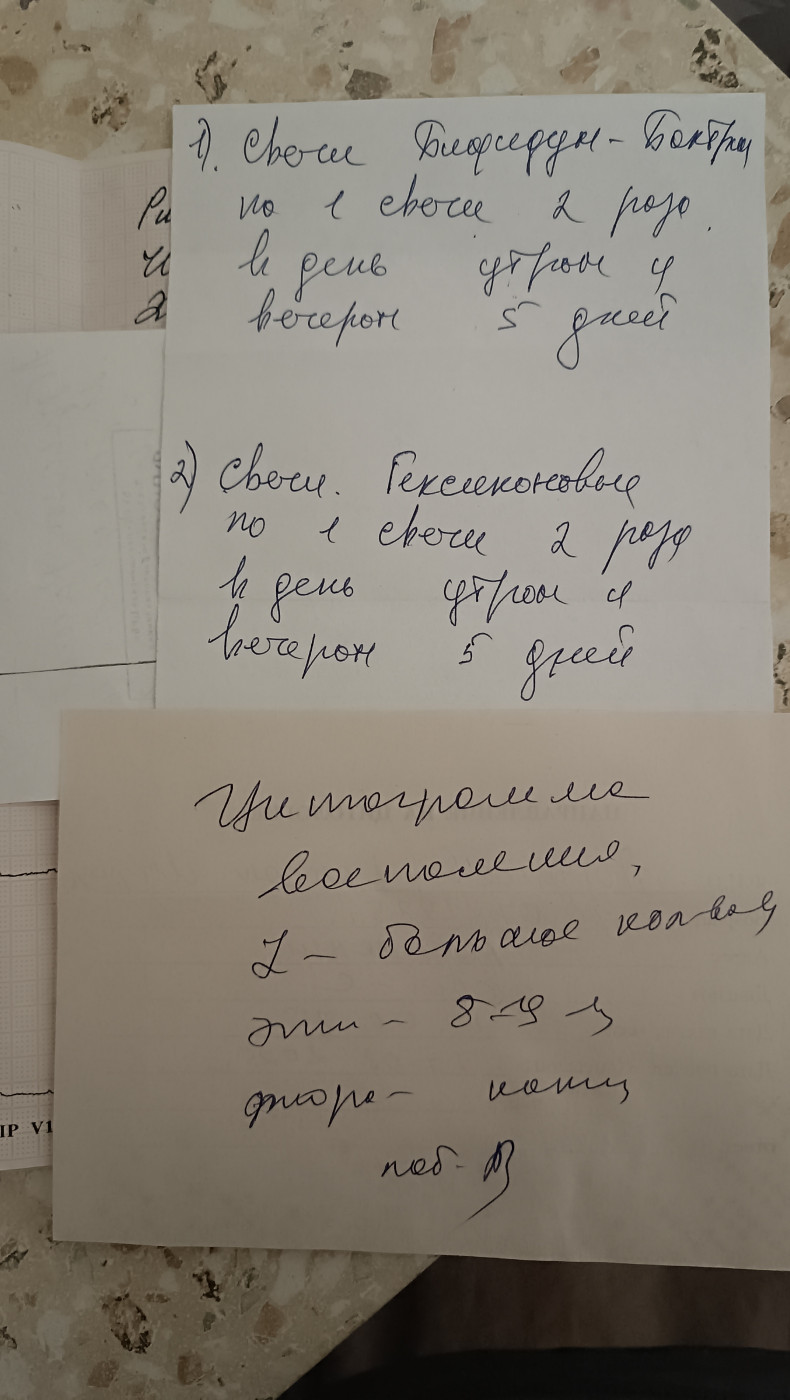 1). Свечи Бифидум-Бактрин
по 1 свечи 2 раза
в день утром и
вечером 5 дней
2) Свечи. Гексиконовые
по 1 свечи 2 раза
в день утром и
вечером 5 дней
Цитограмма
воспаления,
L - большое
эпи - 8-19
флора -
каб.
Ри
IP V1